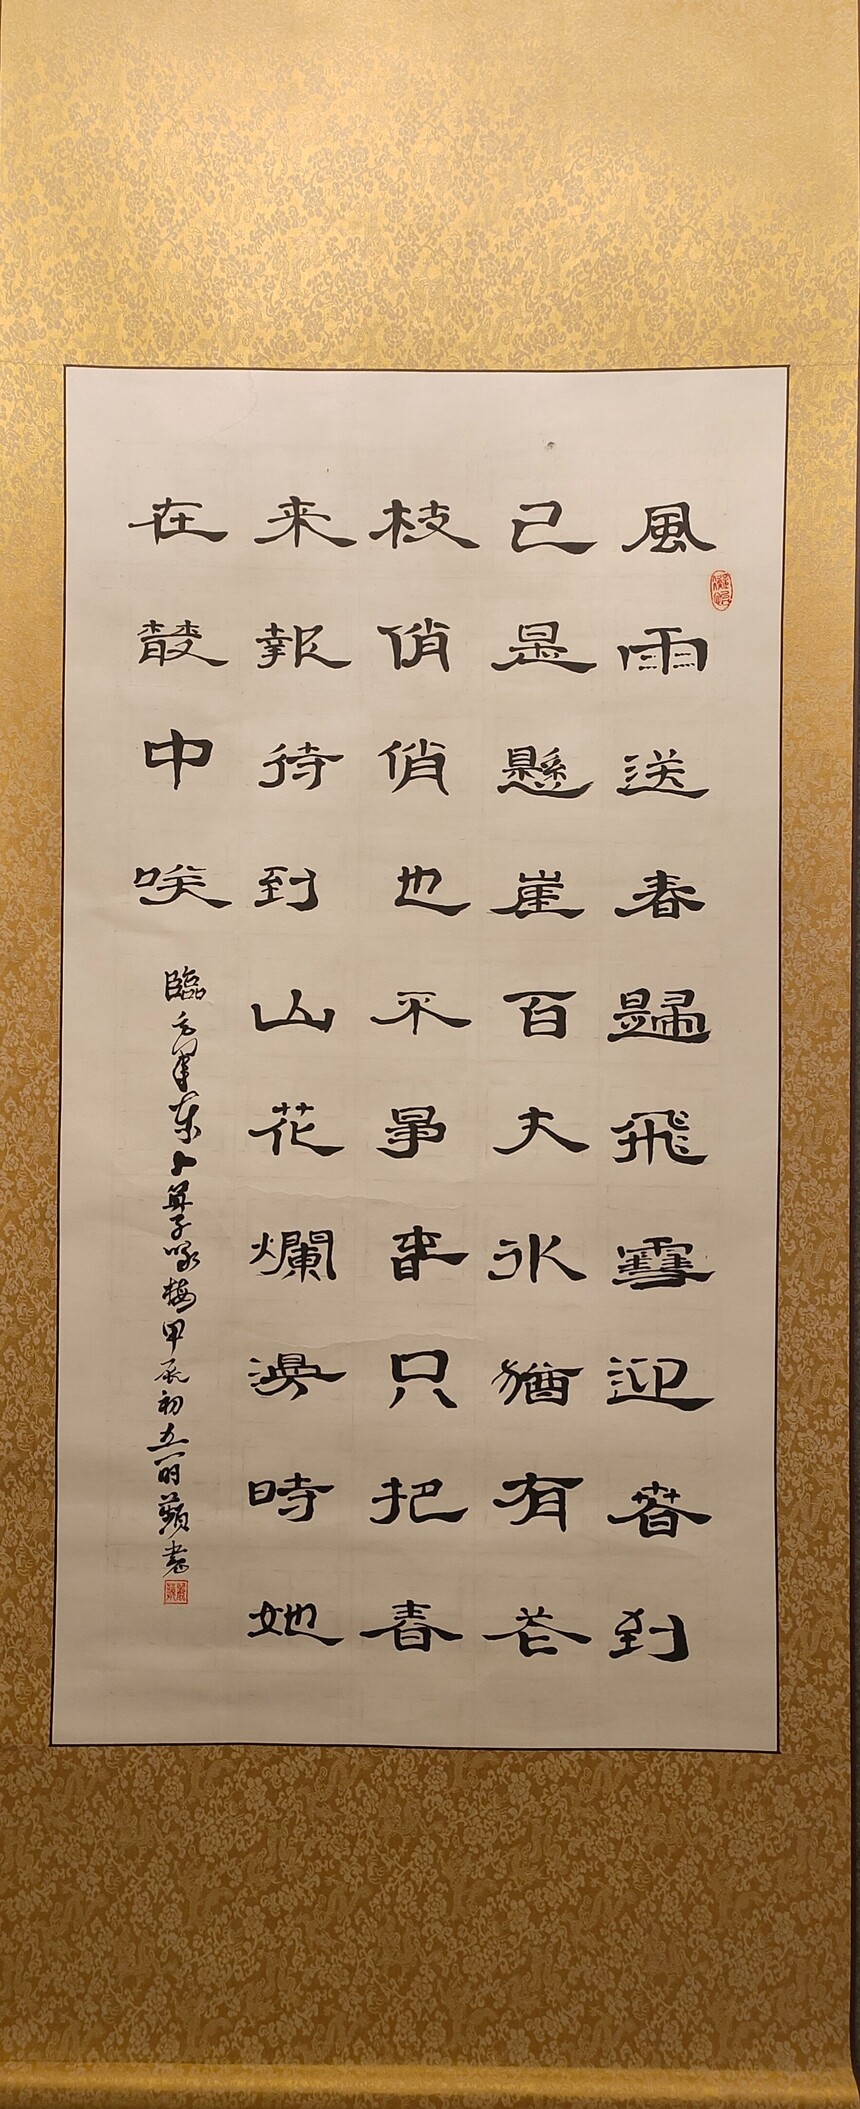 風雨送春歸飛雪迎春到
已是懸崖百丈冰猶有花
枝俏俏也不爭春只把春
来報待到山花爛漫時她
在叢中咲
臨毛澤東卜算子咏梅甲辰初五丽蘋書